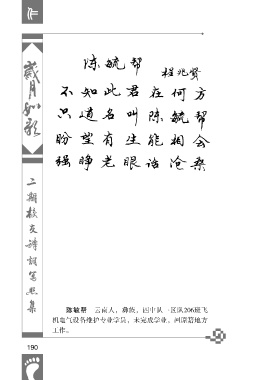 作
岁月如歌
二期校友诗词笔照集
陈毓帮
程兆贤
不知此君在何方
只道名叫陈毓帮
盼望有生能相会
强睁老眼话沧桑
陈毓帮 云南人，彝族，四中队一区队206班飞
机电气设备维护专业学员，未完成学业，回原籍地方
工作。
190